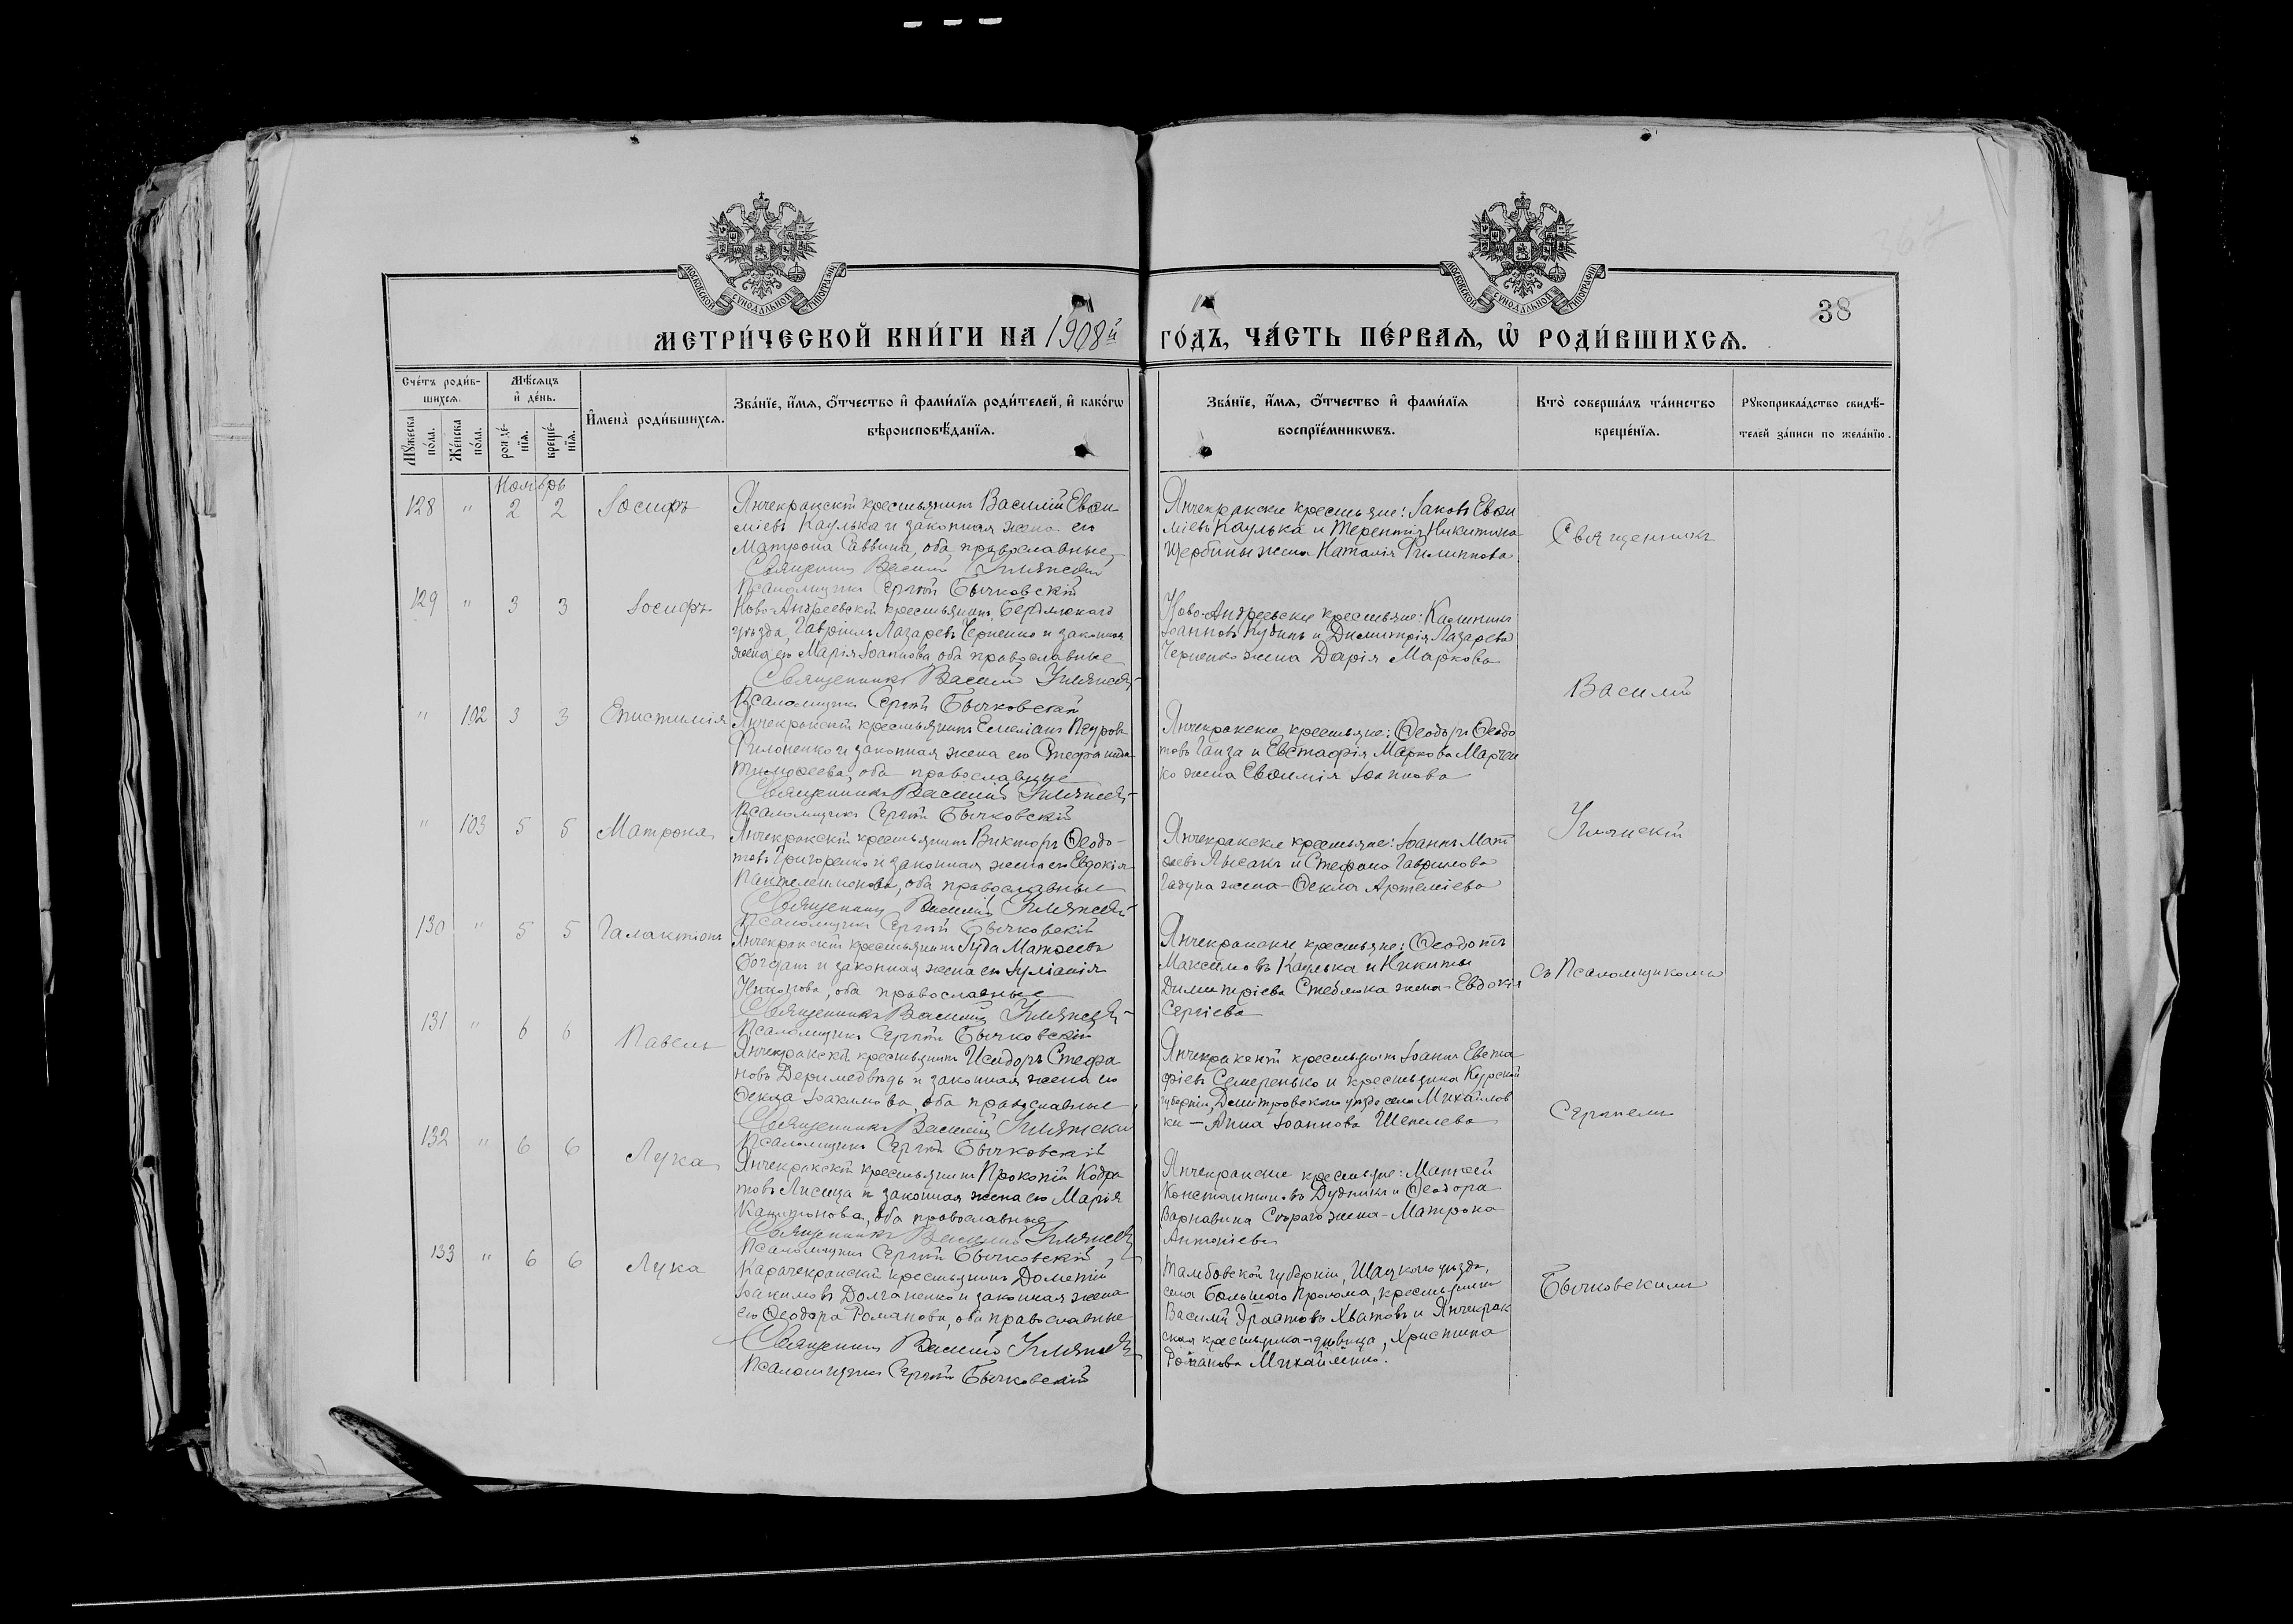 МОСКОВСКОЙ СУНОДАЛЬНОЙ ТИПОГРАФІИ
МОСКОВСКОЙ СУНОДАЛЬНОЙ ТИПОГРАФІИ
38
МЕТРИ́ЧЕСКОЙ КНИ́ГИ НА 1908й ГО́ДЪ, ЧА́СТЬ ПЕ́РВАѦ, Ѡ҆ РОДИ́ВШИХСѦ.
Сче́тъ роди́в-
шихсѧ.
Мѣ́сѧцъ
и҆ де́нь.
И҆мена̀ роди́вшихсѧ.
Зва́нїе, и҆́мѧ, ѻ҆́тчество и҆ фами́лїѧ роди́телей, и҆ како́гѡ
вѣроисповѣ́данїѧ.
Мꙋ́жеска по́ла.
Же́нска по́ла.
рожде́-нїѧ.
креще́-нїѧ.
Зва́нїе, и҆́мѧ, ѻ҆́тчество и҆ фами́лїѧ
воспрїе́мникѡвъ.
Кто̀ соверша́лъ та́инство
креще́нїѧ.
Рꙋкоприкла́дство свидѣ́-
телей за́писи по жела́нїю.
Ноябрь
128 " 2 2 Іосифъ
Янчекракскій крестьянинъ Василій Евѳи-
міевъ Каулька и законная жена его
Матрона Саввина, оба православные
Священникъ Василій
Псаломщикъ Сергій Бычковскій
Янчекракскіе крестьяне: Іаковъ Евѳи
міевъ Каулька и Терентія Никитина
Щербины жена Наталія Филиппова
129 " 3 3 Іосифъ
Ново-Андреевскій крестьянинъ, Бердянскаго
уѣзда, Гавріилъ Лазаревъ Черненко и законная
жена его Марія Іоаннова, оба православные
Священникъ Василій
Псаломщикъ Сергій Бычковскій
Ново-Андреевскіе крестьяне:
Іоанновъ и Димитрія Лазарева
Черненко жена Дарія Маркова
" 102 3 3 Епистимія
Янчекракскій крестьянинъ Емеліанъ Петровъ
Филоненко и законная жена его Стефанида
Тимоѳеева, оба православные
Священникъ Василій
Псаломщикъ Сергій Бычковскій
Янчекракскіе крестьяне: Ѳеодоръ Ѳеодо
товъ Ганза и Евстафія Маркова Марчен
ко жена Евѳимія Іоаннова
" 103 5 5 Матрона
Янчекракскій крестьянинъ Викторъ Ѳеодо-
товъ Григоренко и законная жена его Евдокія
Пантелеимонова, оба православные
Священникъ Василій
Псаломщикъ Сергій Бычковскій
Янчекракскіе крестьяне: Іоаннъ Мат
ѳеевъ Лысакъ и Стефана Гаврилова
жена - Ѳекла Артеміева
130 " 5 5 Галактіонъ
Янчекракскій крестьянинъ Іуда Матѳеевъ
Богданъ и законная жена его Іуліанія
оба православные
Священникъ Василій
Псаломщикъ Сергій Бычковскій
Янчекракскіе крестьяне: Ѳеодотъ
Максимовъ Каулька и Никиты
Димитріева Стеблюка жена - Евдокія
Сергіева
131 " 6 6 Павелъ
Янчекракскій крестьянинъ Исидоръ Стефа
новъ Деримедвѣдь и законная жена его
Ѳекла Іоакимова, оба православные
Священникъ Василій
Псаломщикъ Сергій Бычковскій
Янчекракскій крестьянинъ Іоаннъ Евста
фіевъ Семеренько и крестьянка Курской
губерніи, Дмитровского уѣзда села Михайлов
ки - Анна Іоаннова Шепелева
132 " 6 6 Лука
Янчекракскій крестьянинъ Прокопій Кодра
товъ Лисица и законная жена его Марія
Капитонова, оба православные
Священникъ Василій
Псаломщикъ Сергій Бычковскій
Янчекракскіе крестьяне: Матѳей
Константиновъ Дудникъ и Ѳеодора
Варнавина Скораго жена - Матрона
Антоніева
133 " 6 6 Лука
Карачекракскій крестьянинъ Дометій
Іоакимовъ Долганенко и законная жена
его Ѳеодора Романова, оба православные
Священникъ Василій
Псаломщикъ Сергій Бычковскій
Тамбовской губерніи, Шацкого уѣзда,
села Большого Пролома, крестьянинъ
Василій Эрастовъ Хватовъ и Янчекрак
ская крестьянка - дѣвица, Христина
Романова Михайленко.
Священникъ
Василій
съ Псаломщикомъ
Сергіемъ
Бычковскимъ